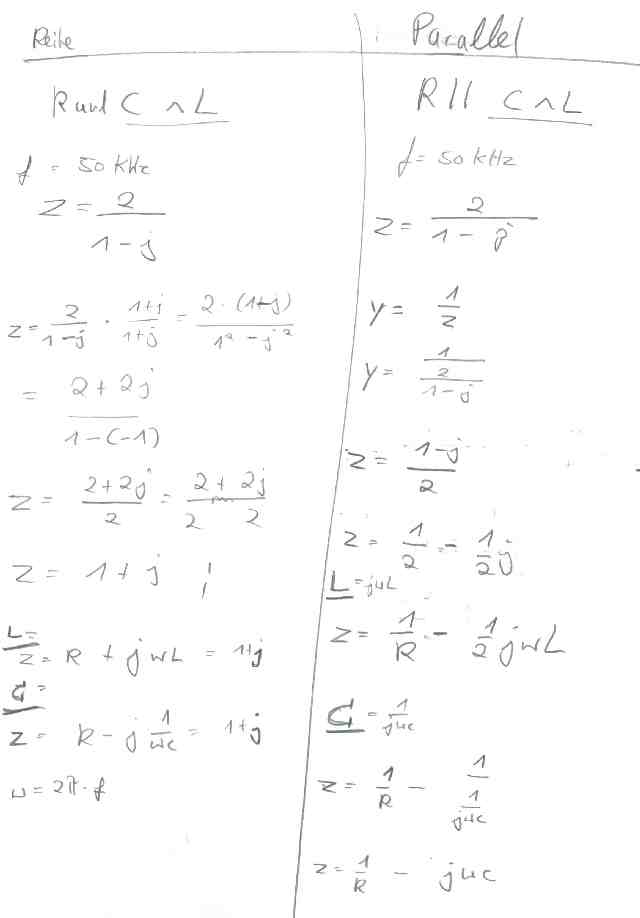 Reihe
R und C ∧ L
f = 50 kHz
Z = 2 / (1 - j)
z = 2/(1-j) · (1+j)/(1+j) = 2·(1+j) / (1² - j²)
= (2 + 2j) / (1-(-1))
Z = (2+2j)/2 = 2/2 + 2j/2
Z = 1 + j ;
L =
Z = R + jwL = 1+j
C =
Z = R - j 1/wc = 1+j
w = 2π·f
Parallel
R || C ∧ L
f = 50 kHz
Z = 2 / (1 - j)
y = 1/z
y = 1 / (2/(1-j))
z = (1-j)/2
z = 1/2 - 1/2 j
L = jwL
z = 1/R - 1/2 jwL
C = 1/jwc
z = 1/R - 1 / (1/jwc)
z = 1/R - jwc